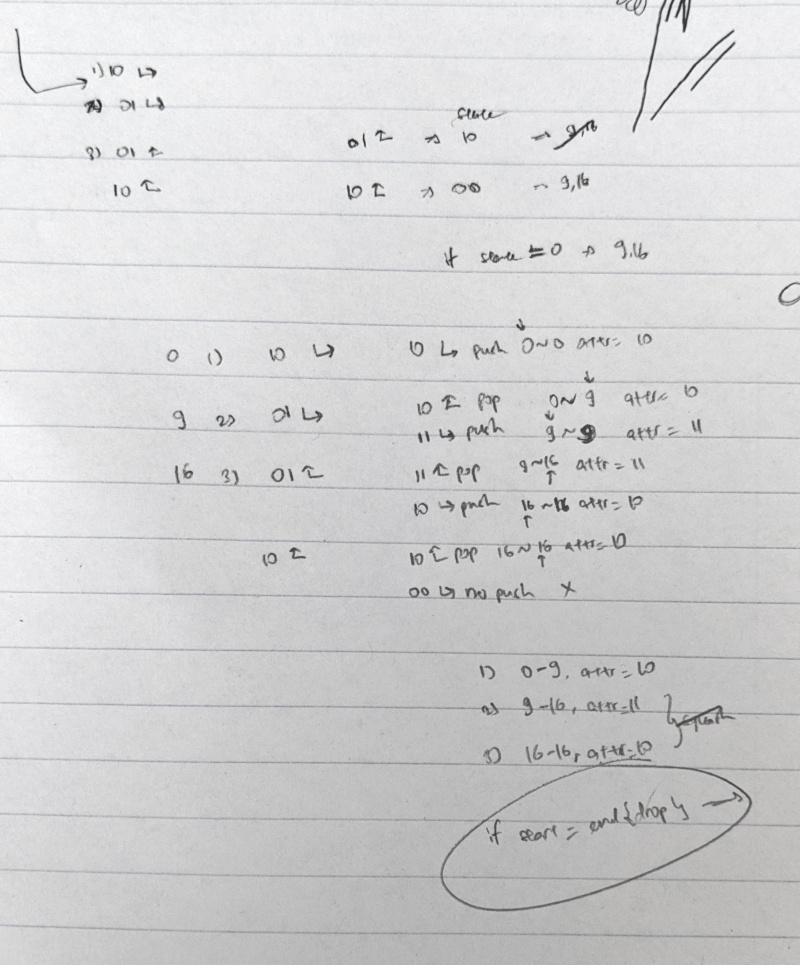 1) 10 ↳
2) 01 ↳
3) 01 ↥
10 ↥
state
01 ↥ → 10 → 9,16
10 ↥ → 00 ~ 9,16
if state == 0 → 9,16
0 1) 10 ↳ 10 ↳ push 0~0 attr= 10
10 ↥ pop 0~9 attr= 10
9 2) 01 ↳ 11 ↳ push 9~9 attr = 11
16 3) 01 ↥ 11 ↥ pop 9~16 attr = 11
10 ↳ push 16~16 attr= 10
10 ↥ 10 ↥ pop 16~16 attr= 10
00 ↳ no push X
1) 0-9, attr= 10
2) 9-16, attr=11
3) 16-16, attr=10
if start = end {drop}